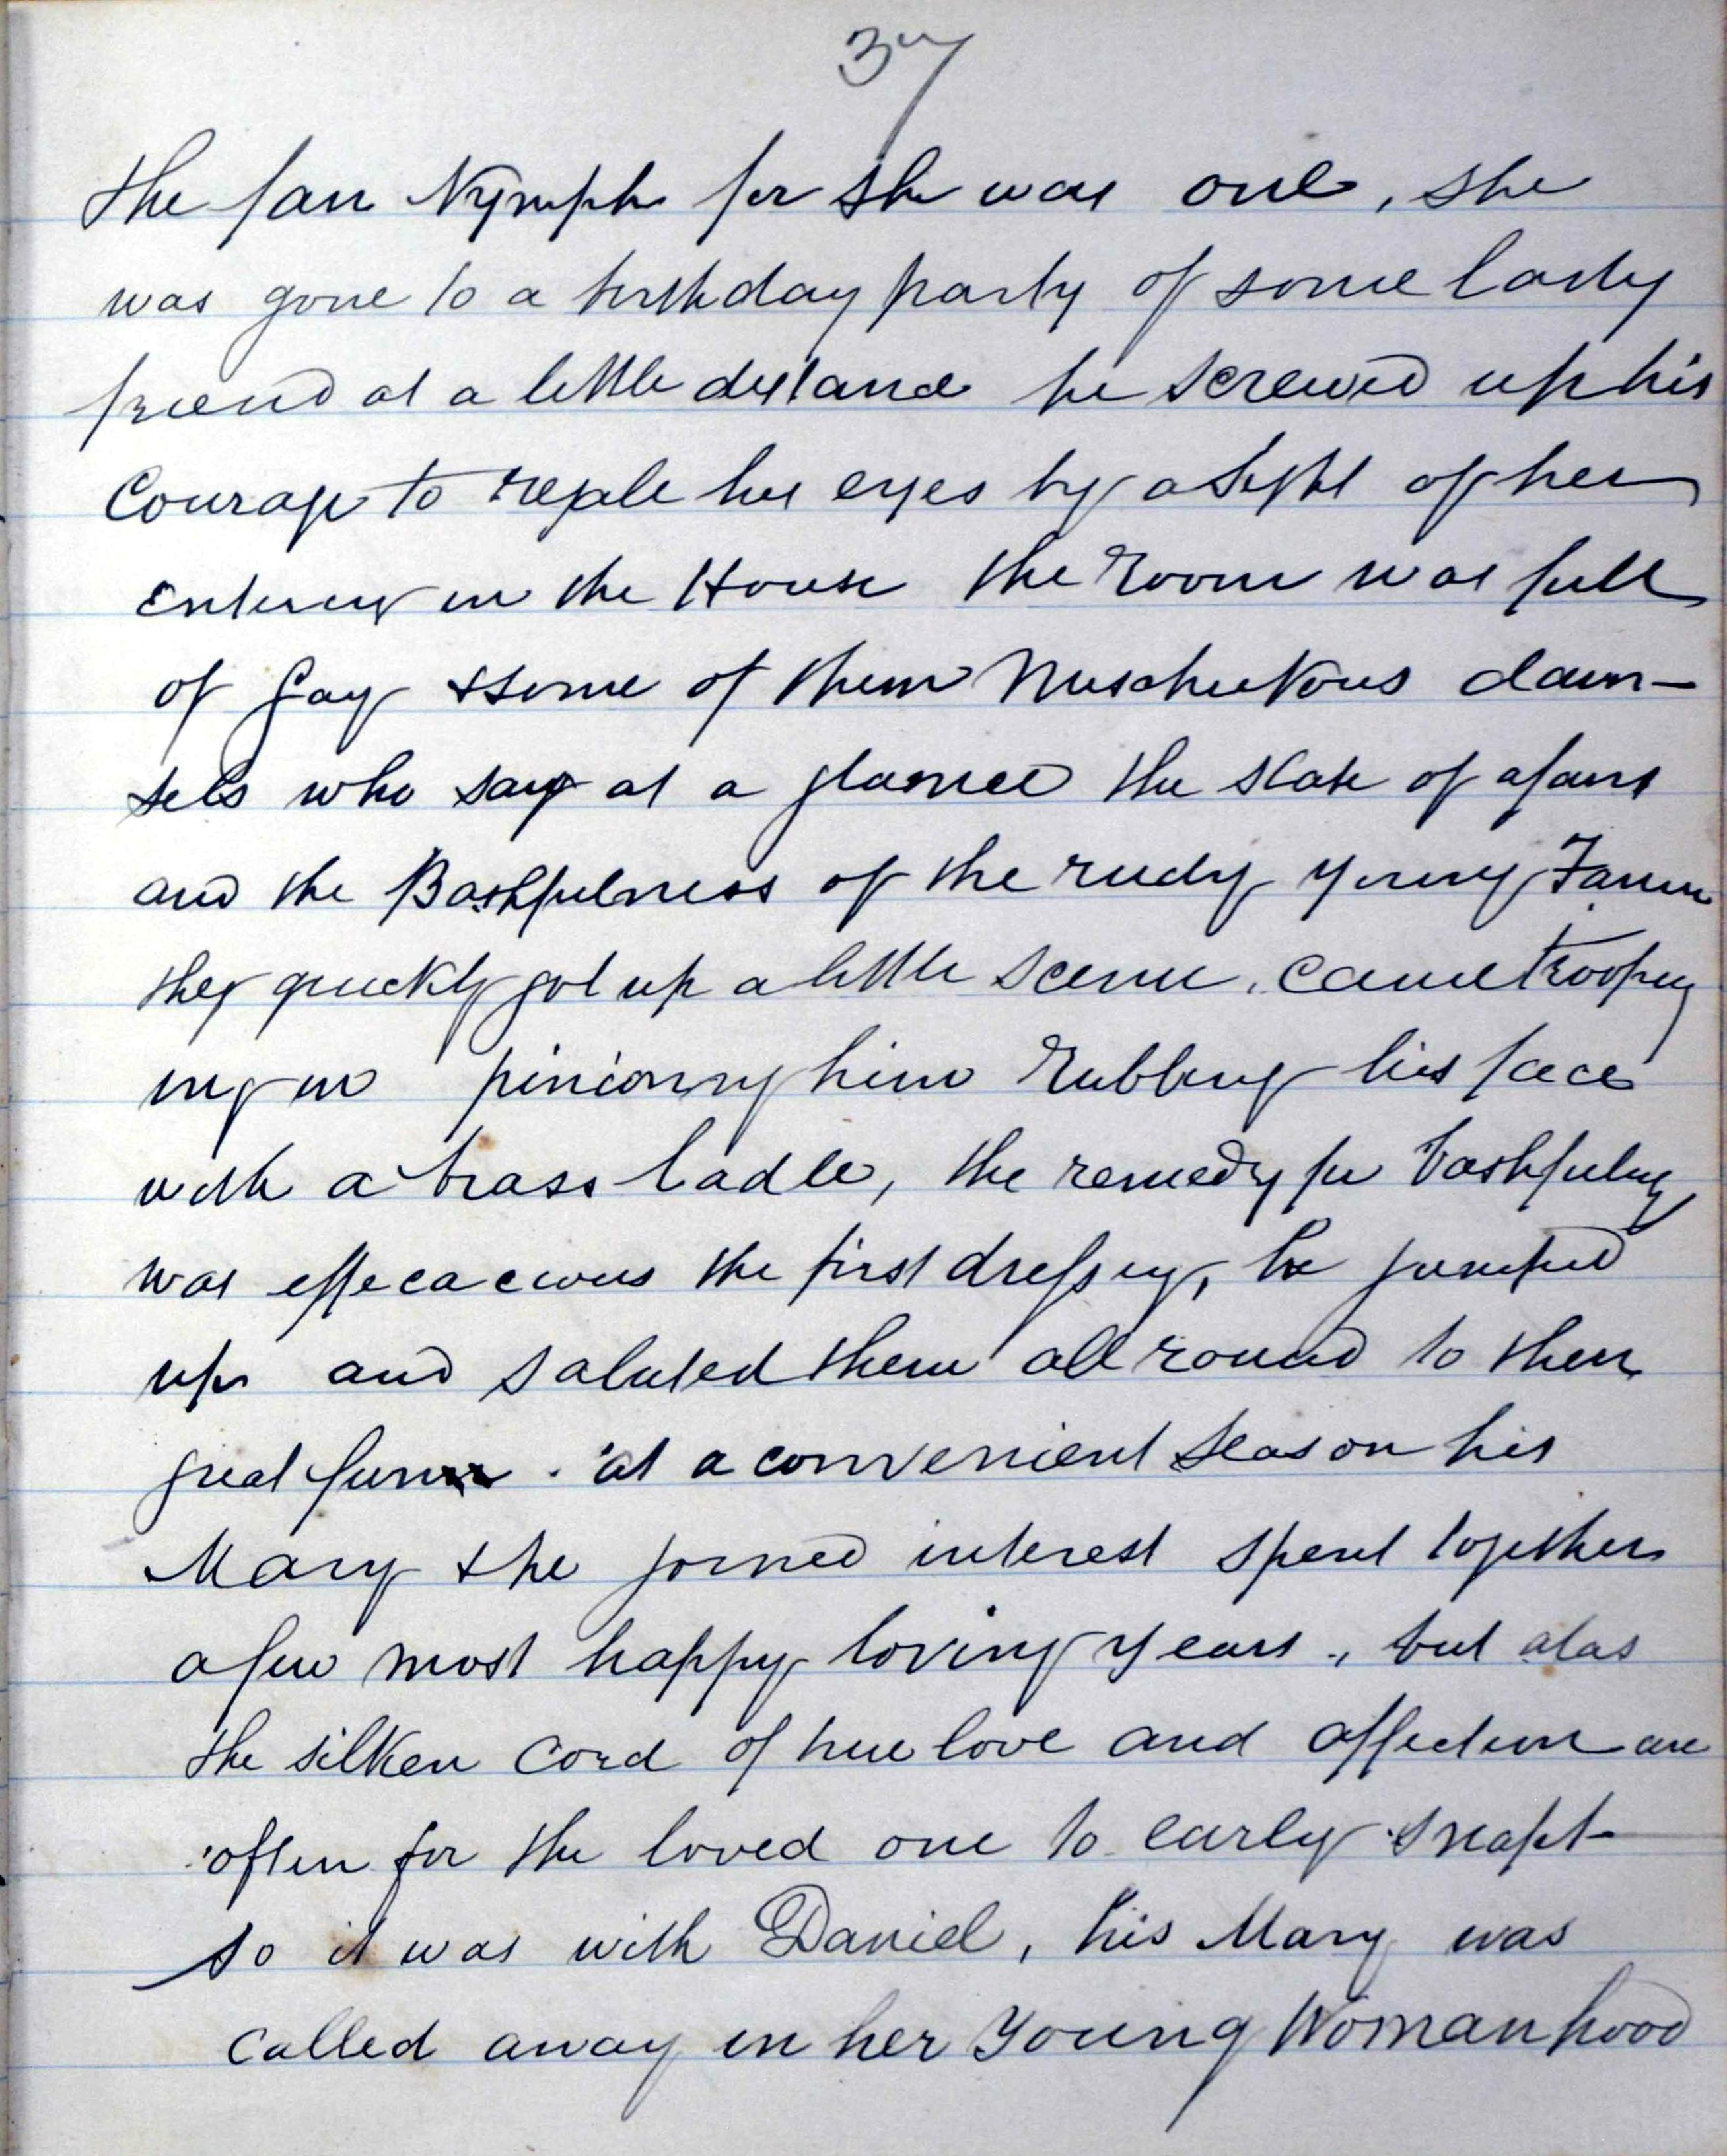 37
the fair Nymph for she was one, she
was gone to a birthday party of some lady
friend at a little distance he screwed up his
Courage to regale his eyes by a sight of her
entering in the House the room was full
of gay & some of them Mischievous dam-
sels who say at a glance the state of afairs
and the Bashfulness of the rudy young Farmer
they quickly got up a little scene. came trooping
ing in pinioning him rubbing his face
with a brass ladle, the remedy for bashfulness
was effecacious the first dressing, he jumped
up and saluted them all round to their
great fun . at a convenient season his
Mary & he joined interest spent together
a few most happy loving years., but alas
the silken cord of true love and affection are
often for the loved one to early snapt
so it was with Daniel, his Mary was
called away in her young Womanhood